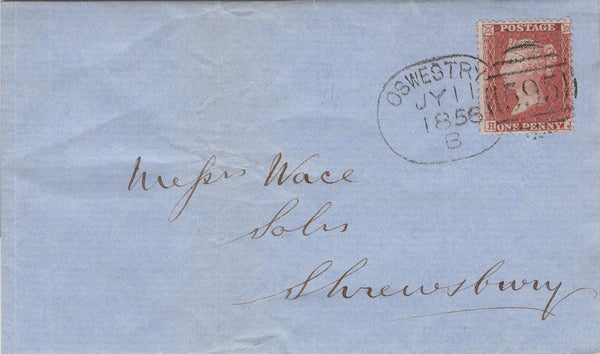 POSTAGE
OSWESTRY
JY 11
1856
B
595
H ONE PENNY
Messrs Wace
Solrs
Shrewsbury